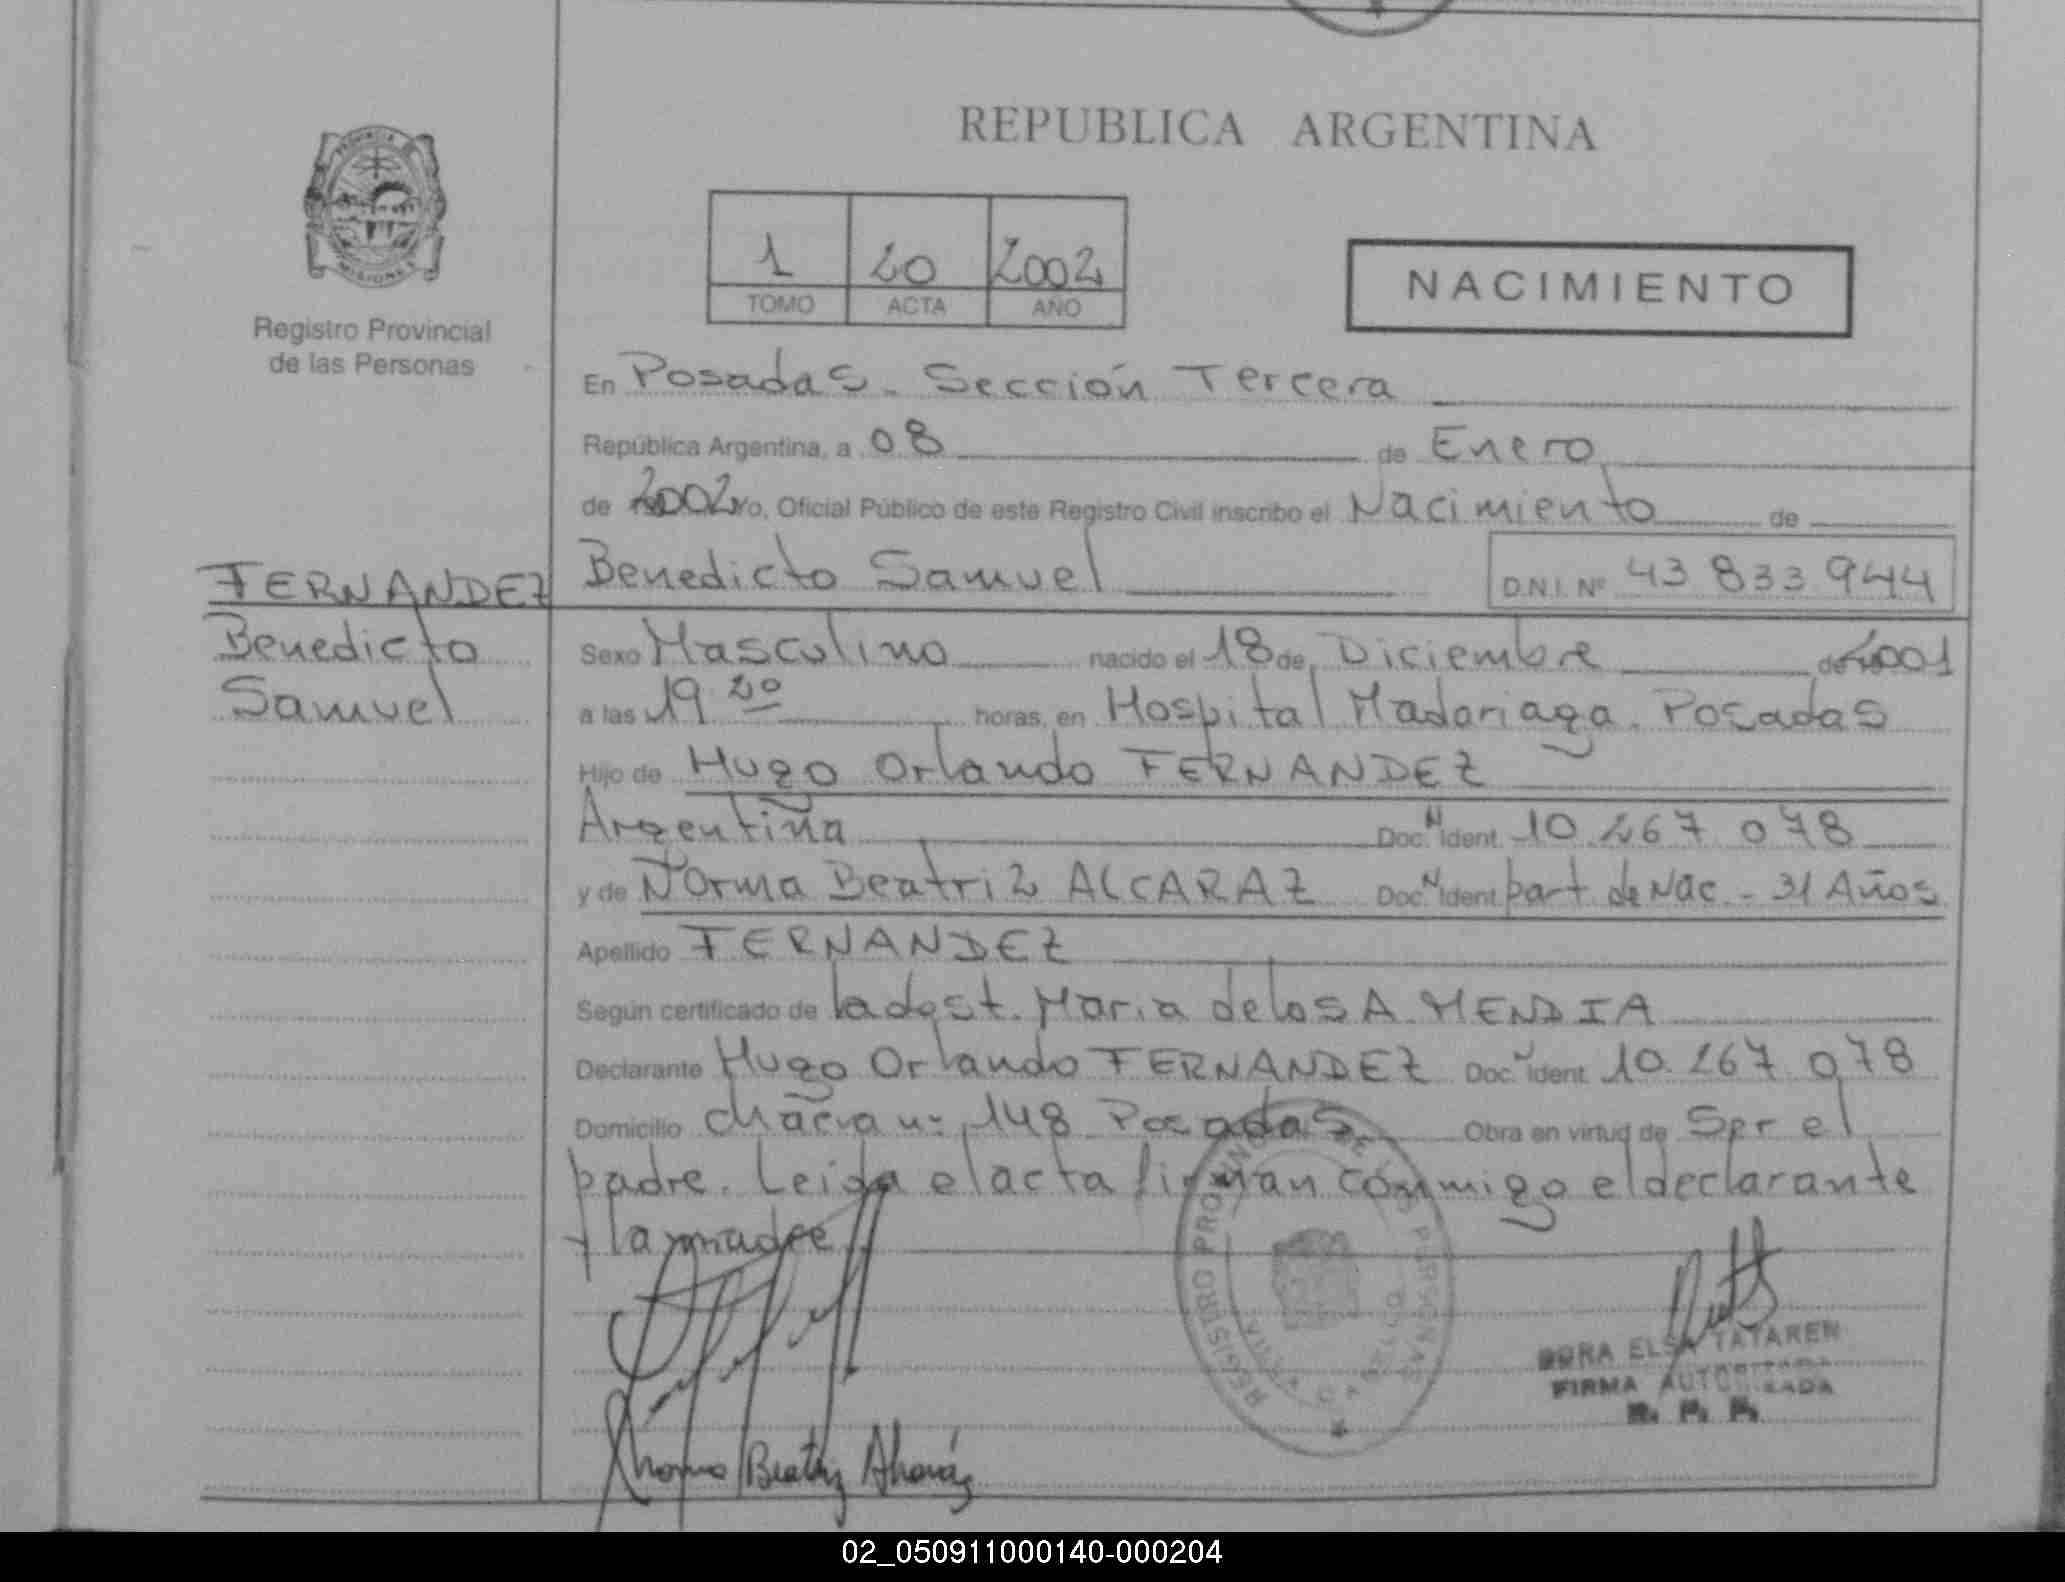 PROVINCIA DE
MISIONES
Registro Provincial
de las Personas
FERNANDEZ
Benedicto
Samuel
REPUBLICA ARGENTINA
1 20 2002
TOMO ACTA AÑO
NACIMIENTO
En Posadas - Sección Tercera
República Argentina, a 08 de Enero
de 2002 Yo, Oficial Público de este Registro Civil inscribo el Nacimiento de
Benedicto Samuel D.N.I. Nº 43 833 944
Sexo Masculino nacido el 18 de Diciembre de 2001
a las 19 20 horas, en Hospital Madariaga. Posadas
Hijo de Hugo Orlando FERNANDEZ
Argentina Doc. N Ident. 10.267 078
y de Norma Beatriz ALCARAZ Doc. N Ident. part. de Nac - 31 Años
Apellido FERNANDEZ
Según certificado de la dost. Maria de los A. MENDIA
Declarante Hugo Orlando FERNANDEZ Doc. N Ident. 10.267 078
Domicilio chacra nº 148 Posadas Obra en virtud de Ser el
padre. Leida el acta firman conmigo el declarante
y la madre
REGISTRO PROVINCIAL DE LAS PERSONAS
DORA ELSA TATAREN
FIRMA AUTORIZADA
R. P. P.
Norma Beatriz Alcaráz
02_050911000140-000204